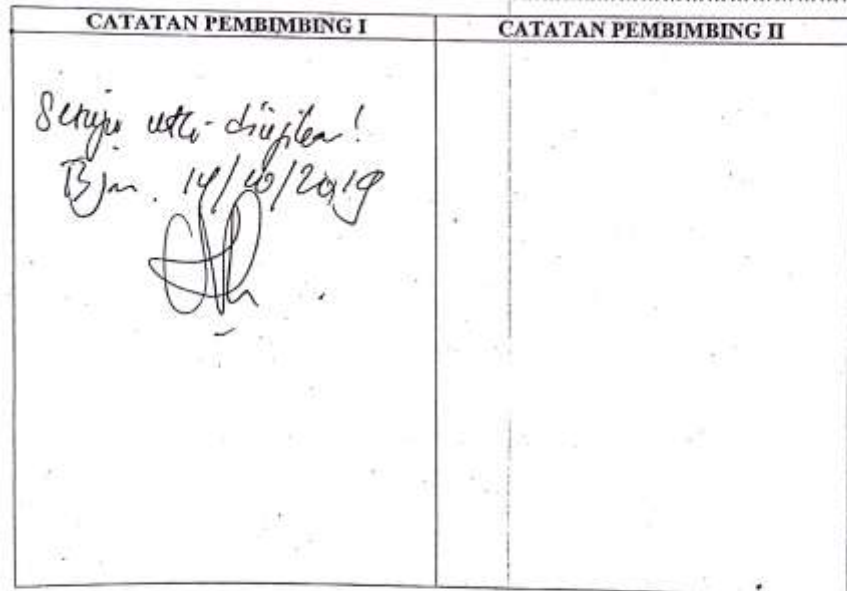 CATATAN PEMBIMBING I
CATATAN PEMBIMBING II
Setuju utk diujikan!
Bjm. 14/10/2019